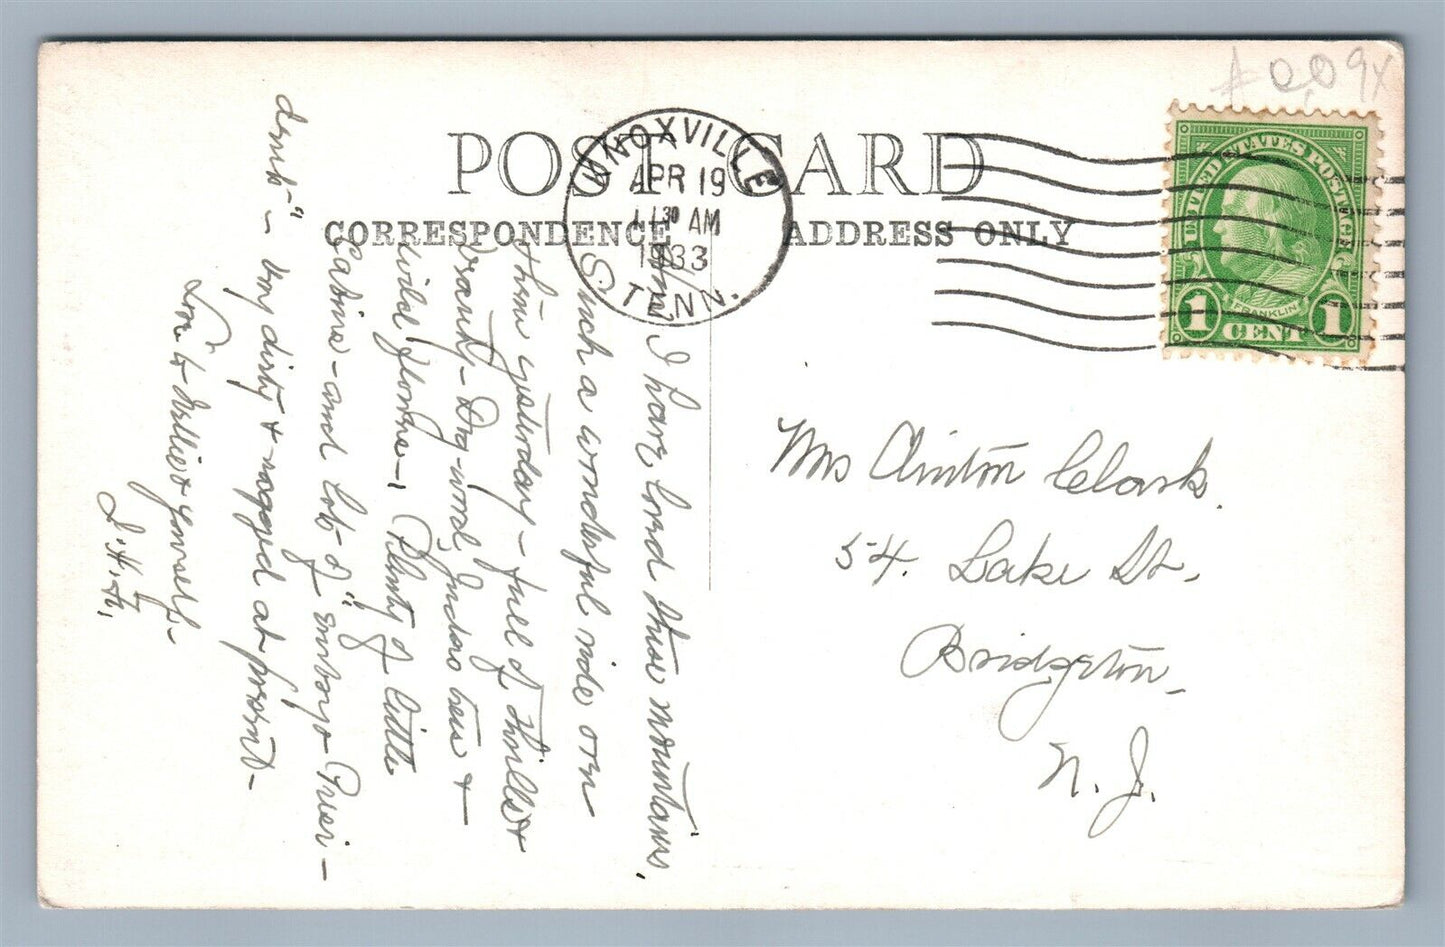 POST CARD
CORRESPONDENCE
ADDRESS ONLY
KNOXVILLE
APR 19
11 30 AM
1933
TENN.
UNITED STATES POSTAGE
FRANKLIN
1 CENT 1
Mrs Clinton Clark.
54. Lake St.
Bridgeton
N. J.
I have loved these mountains.
Such a wonderful ride on
them yesterday - full of thrills &
beauty - Dog-wood, trees &
wild flowers -, Plenty of little
Cabins - and lots of "
" - very dirty & ragged at present -
Love to Nellie & yourself -